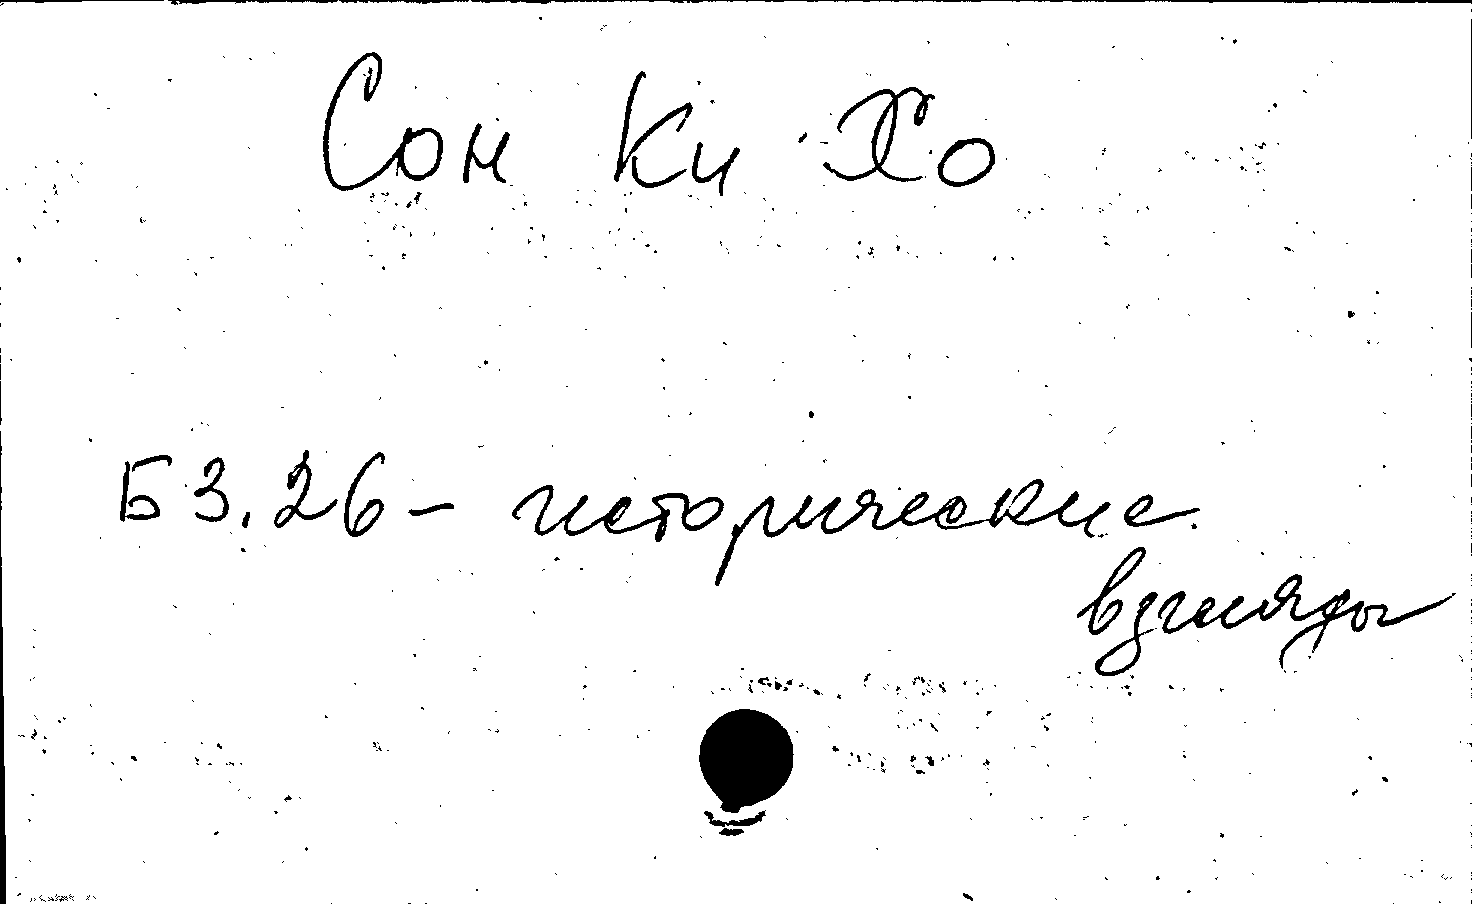 Сон Ки Хо
Б3.26 - исторические
взгляды